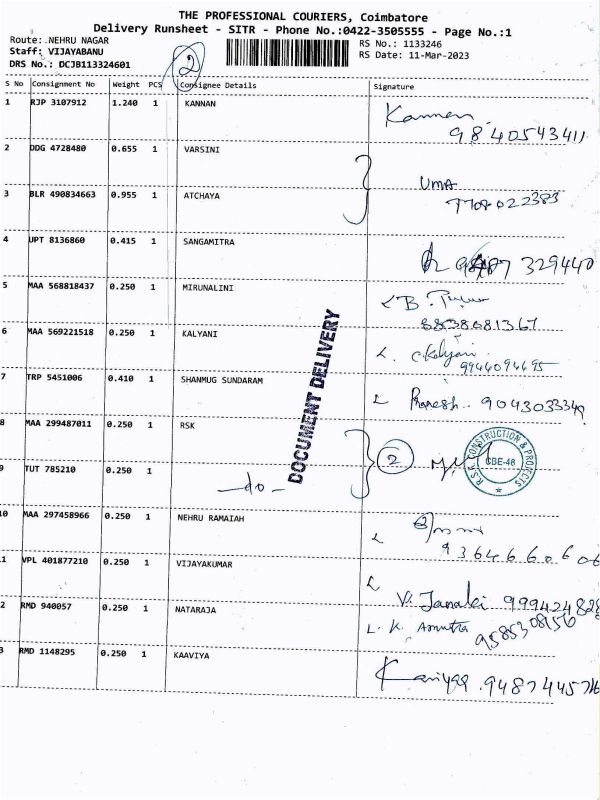 THE PROFESSIONAL COURIERS, Coimbatore
Delivery Runsheet - SITR - Phone No.:0422-3505555 - Page No.:1
Route: NEHRU NAGAR
RS No.: 1133246
Staff: VIJAYABANU
RS Date: 11-Mar-2023
DRS No.: DCJB113324601
2
S No Consignment No Weight PCS Consignee Details Signature
1 RJP 3107912 1.240 1 KANNAN Kannan
9840543411
2 DDG 4728480 0.655 1 VARSINI
3 BLR 490834663 0.955 1 ATCHAYA UMA
4 UPT 8136860 0.415 1 SANGAMITRA 329440
5 MAA 568818437 0.250 1 MIRUNALINI B.
8838681367
6 MAA 569221518 0.250 1 KALYANI C. Kalyani
9944094495
7 TRP 5451006 0.410 1 SHANMUG SUNDARAM Pranesh
8 MAA 299487011 0.250 1 RSK 2
R.S.K. CONSTRUCTION & PROJECTS
CBE-48
9 TUT 785210 0.250 1 -do-
DOCUMENT DELIVERY
10 MAA 297458966 0.250 1 NEHRU RAMAIAH
9364660606
1 VPL 401877210 0.250 1 VIJAYAKUMAR
V. Janaki 999424828
2 RMD 940057 0.250 1 NATARAJA L. K. Amutha
9585308156
3 RMD 1148295 0.250 1 KAAVIYA